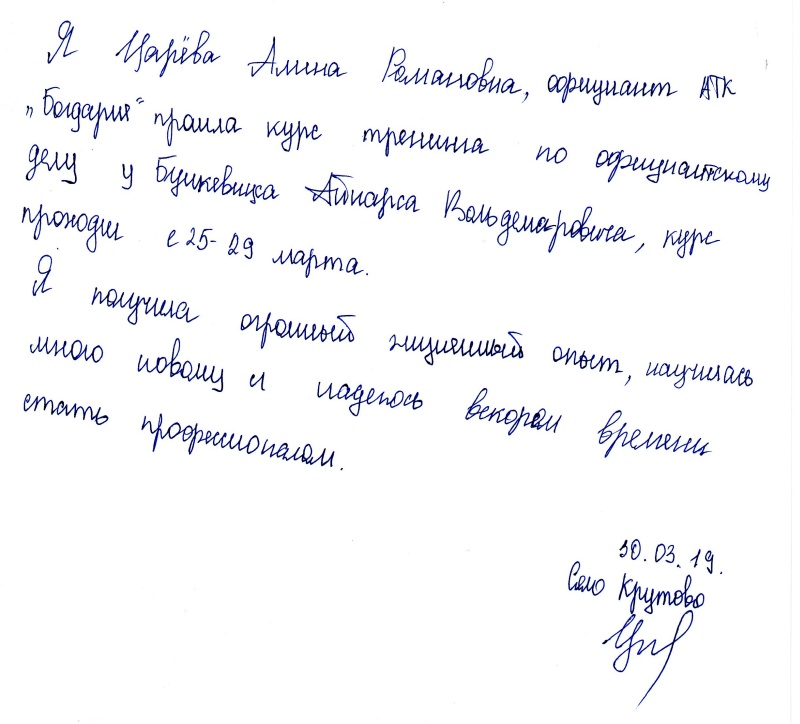 Я Царёва Алина Романовна, официант АТК
„Богдарня" прошла курс тренинга по официантскому
делу у Бункевицса Айнарса Вольдемаровича, курс
проходил с 25-29 марта.
Я получила огромный жизненный опыт, научилась
много новому и надеюсь вскором времени
стать профессионалом.
30.03.19.
Село Крутово